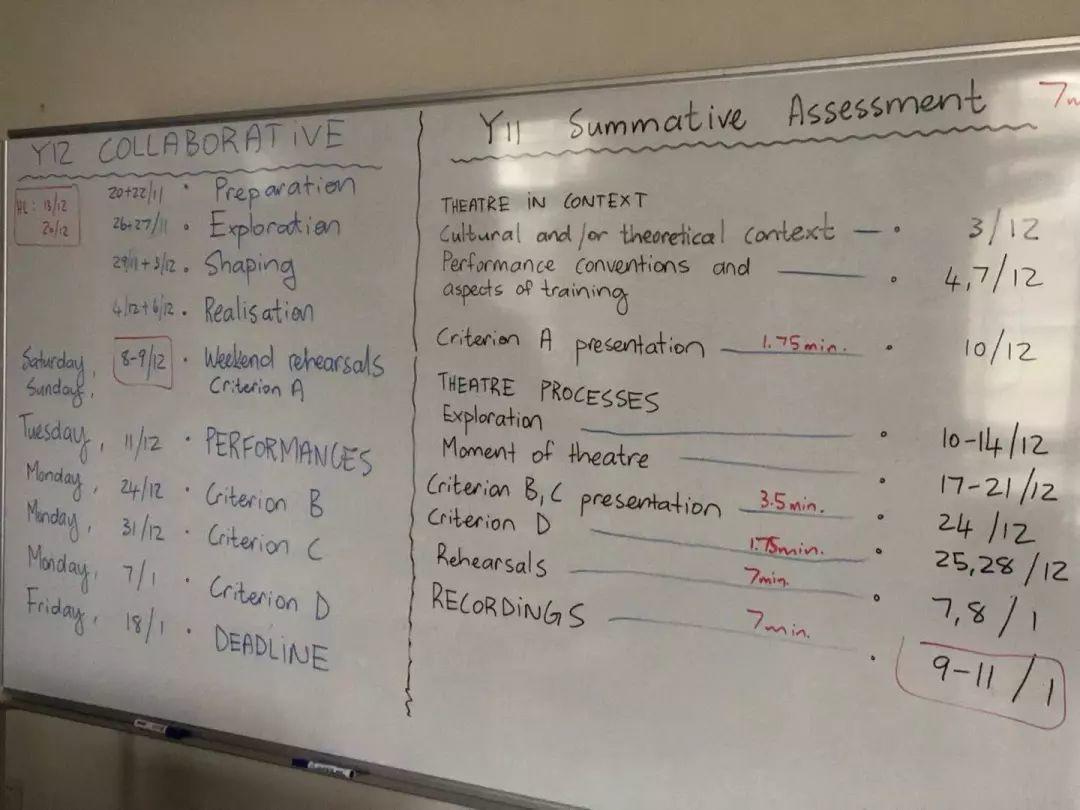 Y12 COLLABORATIVE
HL: 13/12
20/12
20+22/11 • Preparation
26+27/11 • Exploration
29/11 + 3/12 • Shaping
4/12 + 6/12 • Realisation
Saturday, 8-9/12 • Weekend rehearsals
Sunday, Criterion A
Tuesday, 11/12 • PERFORMANCES
Monday, 24/12 • Criterion B
Monday, 31/12 • Criterion C
Monday, 7/1 • Criterion D
Friday, 18/1 • DEADLINE
Y11 Summative Assessment
THEATRE IN CONTEXT
Cultural and/or theoretical context — • 3/12
Performance conventions and — • 4,7/12
aspects of training
Criterion A presentation 1.75min. • 10/12
THEATRE PROCESSES
Exploration — • 10-14/12
Moment of theatre — • 17-21/12
Criterion B,C presentation 3.5min. • 24/12
Criterion D 1.75min. • 25,28/12
Rehearsals 7min. • 7,8/1
RECORDINGS 7min. • 9-11/1